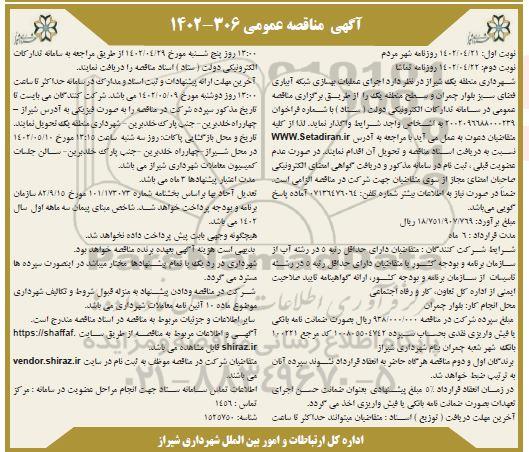 آگهی مناقصه عمومی ۳۰۶-۱۴۰۲
نوبت اول: ۱۴۰۲/۰۴/۲۱ روزنامه شهر مردم
نوبت دوم: ۱۴۰۲/۰۴/۲۲ روزنامه تماشا
شهرداری منطقه یک شیراز در نظر دارد اجرای عملیات بهسازی شبکه آبیاری
فضای سبز بلوار چمران و سطح منطقه یک را از طریق برگزاری مناقصه
عمومی در سامانه تدارکات الکترونیکی دولت (ستاد) با شماره فراخوان
۲۰۰۲۰۹۶۹۸۸۰۰۰۲۳۹ به اشخاص واجد شرایط واگذار نماید. لذا از کلیه
متقاضیان دعوت به عمل می آید با مراجعه به آدرس WWW.Setadiran.ir
نسبت به دریافت اسناد مناقصه و تحویل آن اقدام نمایند. در صورت عدم
عضویت قبلی، ثبت نام در سامانه مذکور و دریافت گواهی امضای الکترونیکی
صاحبان امضای مجاز از سوی متقاضیان جهت شرکت در مناقصه الزامی است.
ضمناً در صورت نیاز به اطلاعات بیشتر شماره تلفن: ۰۷۱۳۶۴۷۶۰۶۴ آماده پاسخ
گویی می‌باشد.
مبلغ برآورد: ۱۸/۷۵۱/۹۰۷/۷۶۹ ریال
مدت قرارداد: ۶ ماه
شرایط شرکت کنندگان: متقاضیان دارای حداقل رتبه ۵ در رشته آب از
سازمان برنامه و بودجه کشور یا متقاضیان دارای حداقل رتبه ۵ در رشته
تاسیسات از سازمان برنامه و بودجه کشور، ارائه گواهینامه تایید صلاحیت
ایمنی از اداره کل تعاون، کار و رفاه اجتماعی
محل انجام کار: بلوار چمران
مبلغ سپرده شرکت در مناقصه ۹۳۸/۰۰۰/۰۰۰ ریال بصورت ضمانت نامه بانکی
یا فیش واریزی نقدی بحساب سپرده ۱۰۰۸۰۵۵۰۴۷۴۲ کد مرجع ۱۰۰۲۲۱
بانک شهر شعبه چمران بنام شهرداری شیراز
برندگان اول و دوم مناقصه هرگاه حاضر به انعقاد قرارداد نشوند سپرده آنان
به ترتیب ضبط خواهد شد.
در زمان انعقاد قرارداد ۵% مبلغ پیشنهادی بعنوان ضمانت حسن اجرای
تعهدات بصورت ضمانت نامه بانکی یا فیش واریزی اخذ می گردد.
آخرین مهلت دریافت (توزیع) اسناد: متقاضیان میتوانند حداکثر تا ساعت
۱۳:۰۰ روز پنج شنبه مورخ ۱۴۰۲/۰۴/۲۹ از طریق مراجعه به سامانه تدارکات
الکترونیکی دولت (ستاد) اسناد مناقصه را دریافت نمایند.
آخرین مهلت ارائه پیشنهادات و ثبت اسناد و مدارک در سامانه حداکثر تا ساعت
۱۳:۰۰ روز دوشنبه مورخ ۱۴۰۲/۰۵/۰۹ می باشد. شرکت کنندگان می بایست تا
تاریخ مذکور سپرده شرکت در مناقصه را به صورت فیزیکی به آدرس شیراز –
چهارراه خلدبرین – جنب پارک خلدبرین – شهرداری منطقه یک تحویل نمایند.
تاریخ و محل بازگشایی پاکات: روز سه شنبه ساعت ۱۳:۱۵ مورخ ۱۴۰۲/۰۵/۱۰
در محل شیراز-چهارراه خلدبرین -جنب پارک خلدبرین- سالن جلسات
کمیسیون معاملات شهرداری شیراز می باشد.
مدت اعتبار پیشنهادها ۳ ماه می باشد.
تعدیل آحاد بها براساس بخشنامه شماره ۱۰۱/۱۷۳۰۷۳ مورخ ۸۲/۹/۱۵ سازمان
برنامه و بودجه پرداخت خواهد شد. شاخص مبنای پیمان سه ماهه اول سال
۱۴۰۲ می باشد.
هیچگونه وجهی بابت پیش پرداخت داده نخواهد شد.
بدیهی است هزینه آگهی بعهده برنده مناقصه خواهد بود.
شهرداری در رد یک یا تمام پیشنهادها مختار میباشد در اینصورت سپرده ها
مسترد می گردد.
شرکت در مناقصه ودادن پیشنهاد به منزله قبول شروط و تکالیف شهرداری
موضوع ماده ۱۰ آئین نامه معاملات شهرداری می باشد.
سایر اطلاعات و جزئیات مربوط به مناقصه در اسناد مناقصه مندرج است.
آگهی و اطلاعات مربوط به مناقصه از طریق سایت https://shaffaf.
shiraz.ir قابل مشاهده می باشد.
متقاضیان شرکت در مناقصه موظف به ثبت نام در سایت vendor.shiraz.ir
می باشند.
اطلاعات تماس سامانه ستاد جهت انجام مراحل عضویت در سامانه: مرکز
تماس: ۱۴۵۶
شناسه: ۱۵۲۵۷۵۰
اداره کل ارتباطات و امور بین الملل شهرداری شیراز